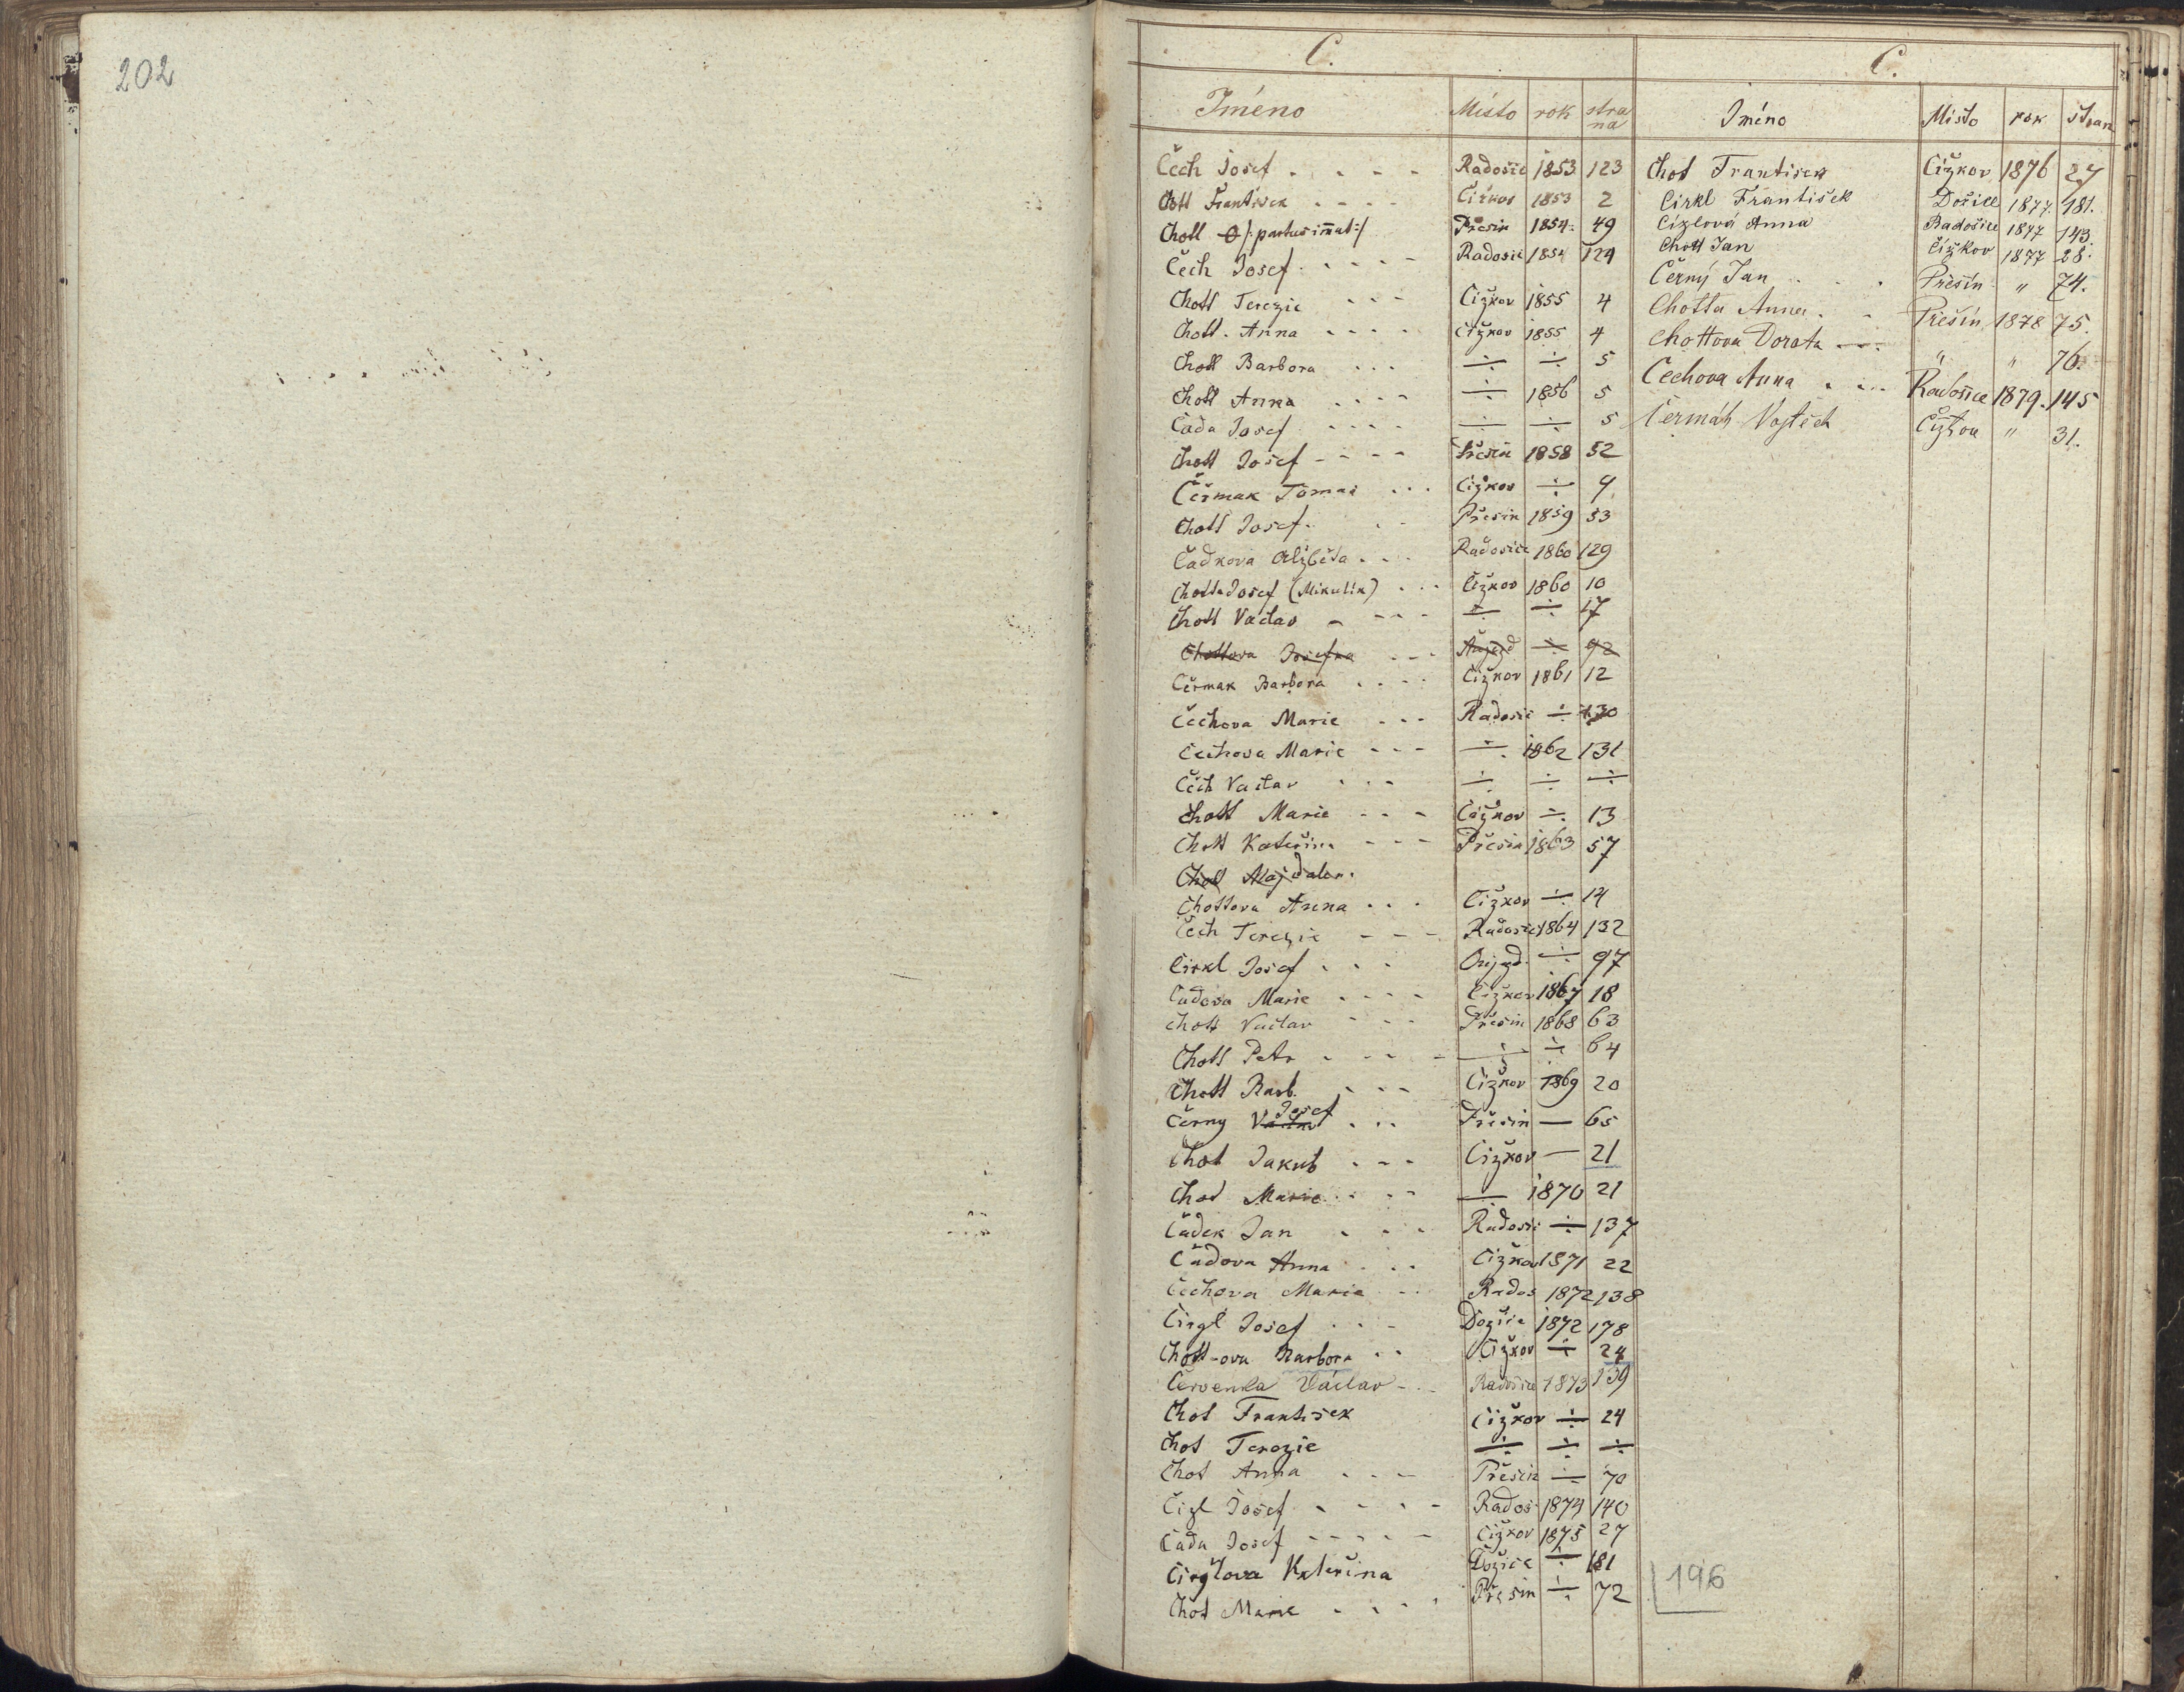 202
C.
Jméno Místo rok strana
Čech Josef Radošic 1853 123
Chott František Čižkov 1853 2
Chott /:partus im̅at:/ Přešin 1854 49
Čech Josef Radošic 1854 124
Chott Terezie Čižkov 1855 4
Chott Anna Čižkov 1855 4
Chott Barbora ÷ ÷ 5
Chott Anna ÷ 1856 5
Čada Josef ÷ ÷ 5
Chott Josef Přešin 1858 52
Čermak Tomaš Čižkov ÷ 9
Chott Josef Přešin 1859 53
Čadkova Alžběta Radošice 1860 129
Chotta Josef (Mikulík) Čižkov 1860 10
Chott Vaclav ÷ ÷ 17
Chottova Josefka Aujezd ÷ 92
Čermak Barbora Čižkov 1861 12
Čechova Marie Radošic ÷ 130
Čechova Marie ÷ 1862 131
Čech Vaclav ÷ ÷ ÷
Chott Marie Čižkov ÷ 13
Chott Kateřina Přešin 1863 57
Chott Majdalen.
Chottova Anna Čižkov ÷ 14
Čech Terezie Radošic 1864 132
Cirkl Josef Oujezd ÷ 97
Čadova Marie Čižkov 1867 18
Chott Vaclav Přešin 1868 63
Chott Petr ÷ ÷ 64
Chott Barb. Čižkov 1869 20
Černy Vaclav Josef Přešin — 65
Chot Jakub Čižkov — 21
Chot Marie — 1870 21
Čadek Jan Radošic ÷ 137
Čadova Anna Čižkov 1871 22
Čechova Marie Rados 1872 138
Cirgl Josef Dožice 1872 178
Chott-ova Barbora Čižkov ÷ 24
Červenka Václav Radošice 1873 139
Chot František Čižkov ÷ 24
Chot Terezie ÷ ÷ ÷
Chot Anna Přešin ÷ 70
Čizl Josef Rados 1874 140
Čada Josef Čižkov 1875 27
Cirglova Kateřina Dožice ÷ 181
Chot Marie Přešin ÷ 72
C.
Jméno Místo rok stran
Chot František Čižkov 1876 27
Cirkl František Dožice 1877 181.
Čizlová Anna Radošice 1877 143.
Chott Jan Čižkov 1877 28.
Černý Jan Přešin " 74.
Chotta Anna Přešín 1878 75.
Chottova Dorota " " 76.
Čechova Anna Radošice 1879. 145
Čermák Vojtěch " 31.
196